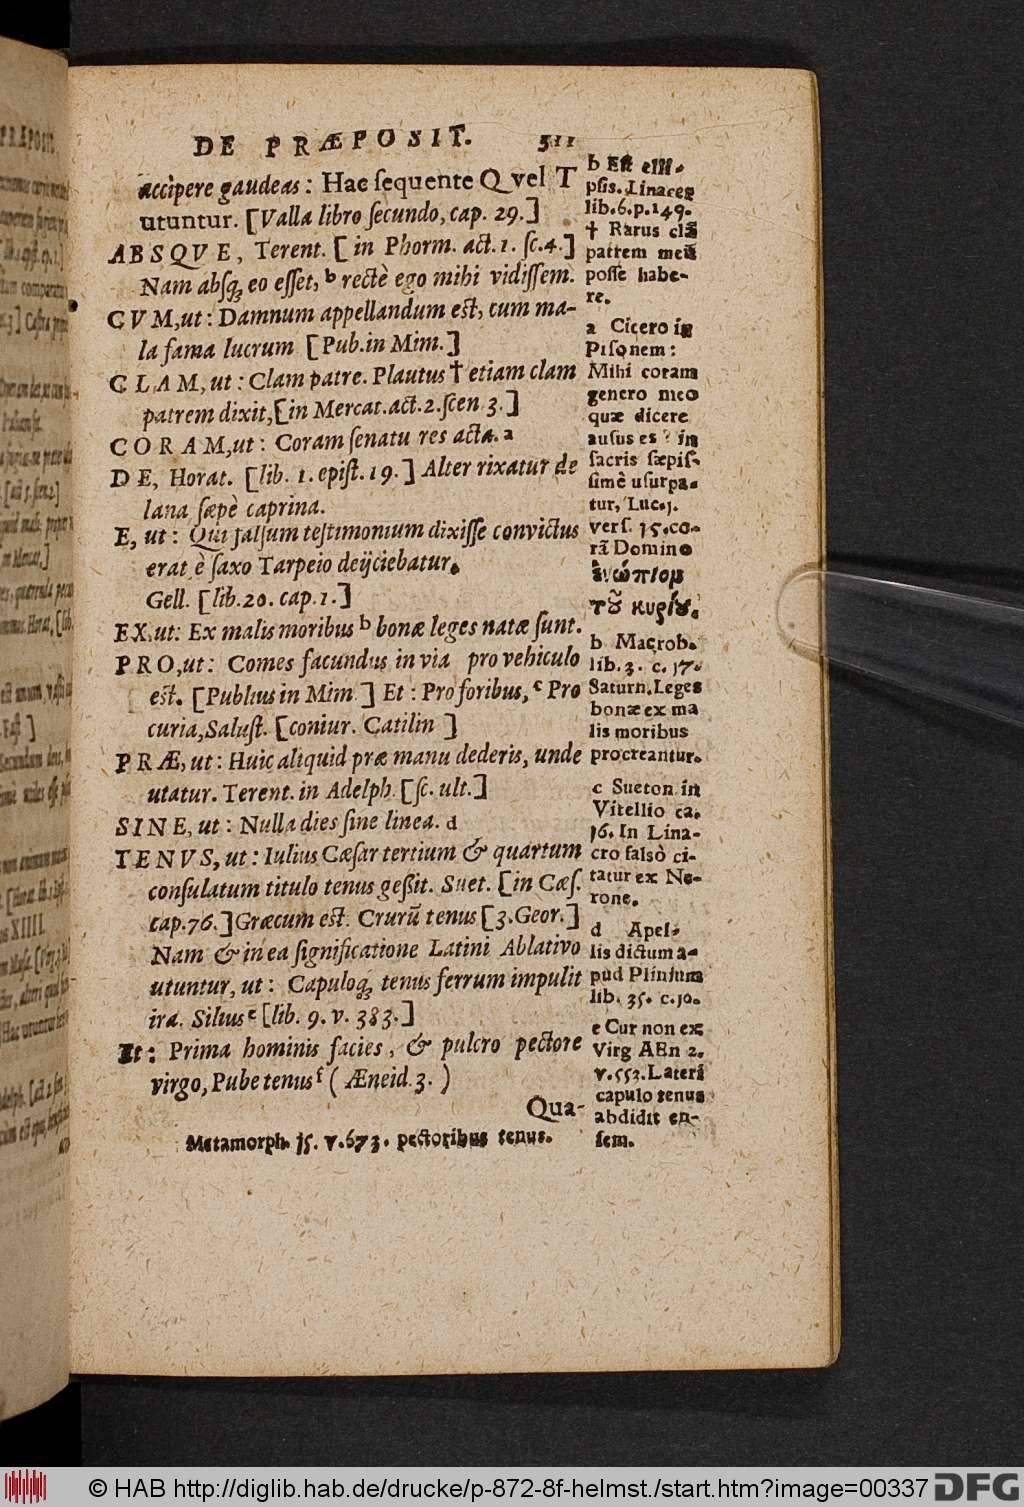 DE PRÆPOSIT. 511
accipere gaudeas: Hac ſequente Q vel T
utuntur. [Valla libro ſecundo, cap. 29.]
ABSQVE, Terent. [in Phorm. act. 1. ſc. 4.]
Nam abſq; eo eſſet, b rectè ego mihi vidiſſem.
CVM, ut: Damnum appellandum eſt, cum ma-
la fama lucrum [Pub. in Mim.]
CLAM, ut: Clam patre. Plautus † etiam clam
patrem dixit, [in Mercat. act. 2. ſcen 3.]
CORAM, ut: Coram ſenatu res acta. a
DE, Horat. [lib. 1. epiſt. 19.] Alter rixatur de
lana ſæpè caprina.
E, ut: Qui falſum teſtimonium dixiſſe convictus
erat è ſaxo Tarpeio deijciebatur.
Gell. [lib. 20. cap. 1.]
EX, ut: Ex malis moribus b bonæ leges natæ ſunt.
PRO, ut: Comes facundus in via pro vehiculo
eſt. [Publius in Mim.] Et: Pro foribus, c Pro
curia, Saluſt. [coniur. Catilin]
PRÆ, ut: Huic aliquid præ manu dederis, unde
utatur. Terent. in Adelph. [ſc. ult.]
SINE, ut: Nulla dies ſine linea. d
TENVS, ut: Iulius Cæſar tertium & quartum
conſulatum titulo tenus geßit. Suet. [in Cæſ.
cap. 76.] Græcum eſt. Crurū tenus [3. Geor.]
Nam & in ea ſignificatione Latini Ablativo
utuntur, ut: Capuloq; tenus ferrum impulit
ira. Silius e [lib. 9. v. 383.]
Et: Prima hominis facies, & pulcro pectore
virgo, Pube tenus f (Æneid. 3.)
Qua-
Metamorph. 15. v. 673. pectoribus tenus.
b Eſt elli-
pſis. Linacer
lib. 6. p. 149.
† Rarus clā
patrem meū
poſſe habe-
re.
a Cicero in
Piſonem:
Mihi coram
genero meo
quæ dicere
auſus es? in
ſacris ſæpiſ-
ſimè uſurpa-
tur, Luc. 1.
verſ. 15. co-
rā Domino
ἐνώπιομ
τοῦ κυρίου.
b Macrob.
lib. 3. c. 17.
Saturn. Leges
bonæ ex ma
lis moribus
procreantur.
c Sueton in
Vitellio ca.
16. In Lina-
cro falsò ci-
tatur ex Ne-
rone.
d Apel-
lis dictum a-
pud Plinium
lib. 35. c. 10.
e Cur non ex
Virg AEn 2.
v. 553. Lateri
capulo tenus
abdidit en-
ſem.
© HAB http://diglib.hab.de/drucke/p-872-8f-helmst./start.htm?image=00337
DFG